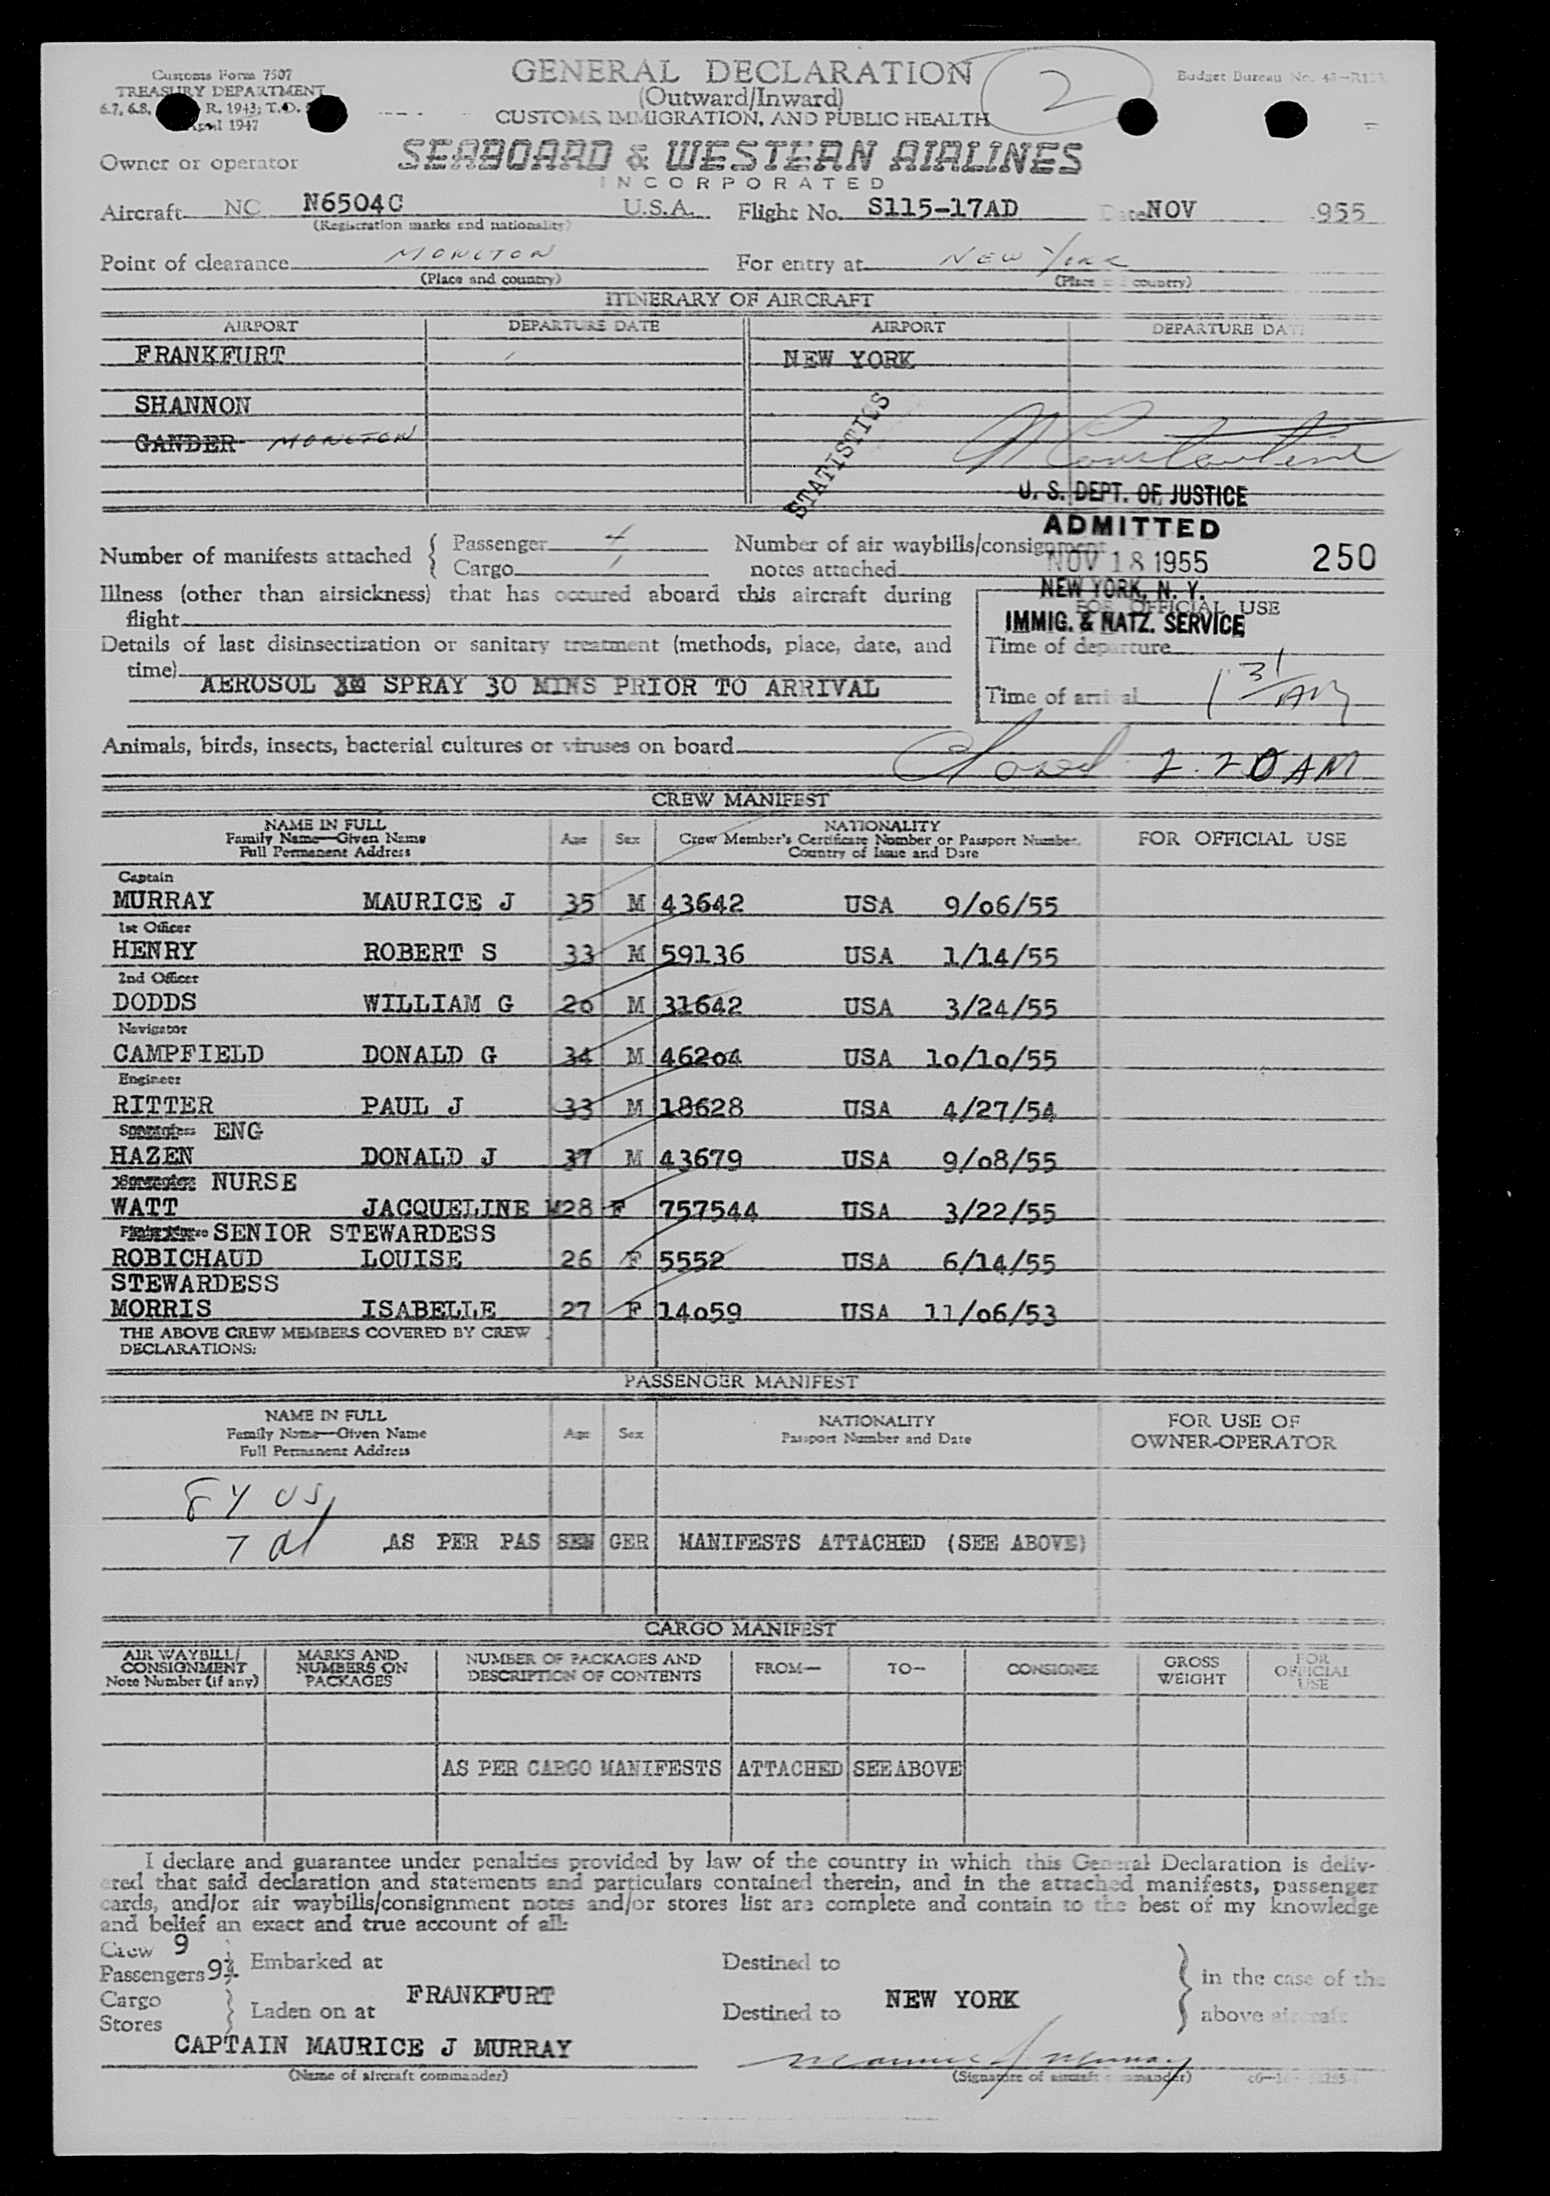 Customs Form 7507
TREASURY DEPARTMENT
6.7, 6.8, R. 1943; T.D.
April 1947
GENERAL DECLARATION
(Outward/Inward)
CUSTOMS, IMMIGRATION, AND PUBLIC HEALTH
2
Budget Bureau No.
Owner or operator
SEABOARD & WESTERN AIRLINES
INCORPORATED
Aircraft NC N6504C U.S.A. Flight No. S115-17AD Date NOV 955
(Registration marks and nationality)
Point of clearance MONCTON For entry at NEW York
(Place and country) (Place and country)
ITINERARY OF AIRCRAFT
AIRPORT DEPARTURE DATE AIRPORT DEPARTURE DATE
FRANKFURT NEW YORK
SHANNON
GANDER MONCTON
STATISTICS
U. S. DEPT. OF JUSTICE
ADMITTED
NOV 18 1955 250
NEW YORK, N. Y.
IMMIG. & NATZ. SERVICE
Number of manifests attached { Passenger 4
Cargo 1
Number of air waybills/consignment
notes attached
Illness (other than airsickness) that has occured aboard this aircraft during
flight
FOR OFFICIAL USE
Details of last disinsectization or sanitary treatment (methods, place, date, and
time)
AEROSOL SPRAY 30 MINS PRIOR TO ARRIVAL
Time of departure
Time of arrival 1 31 AM
Animals, birds, insects, bacterial cultures or viruses on board
Closed 2.20 AM
CREW MANIFEST
NAME IN FULL
Family Name—Given Name
Full Permanent Address
Age Sex
NATIONALITY
Crew Member's Certificate Number or Passport Number,
Country of Issue and Date
FOR OFFICIAL USE
Captain
MURRAY MAURICE J 35 M 43642 USA 9/06/55
1st Officer
HENRY ROBERT S 33 M 59136 USA 1/14/55
2nd Officer
DODDS WILLIAM G 26 M 31642 USA 3/24/55
Navigator
CAMPFIELD DONALD G 34 M 46204 USA 10/10/55
Engineer
RITTER PAUL J 33 M 18628 USA 4/27/54
ENG
HAZEN DONALD J 37 M 43679 USA 9/08/55
NURSE
WATT JACQUELINE M 28 F 757544 USA 3/22/55
SENIOR STEWARDESS
ROBICHAUD LOUISE 26 F 5552 USA 6/14/55
STEWARDESS
MORRIS ISABELLE 27 F 14059 USA 11/06/53
THE ABOVE CREW MEMBERS COVERED BY CREW
DECLARATIONS:
PASSENGER MANIFEST
NAME IN FULL
Family Name—Given Name
Full Permanent Address
Age Sex
NATIONALITY
Passport Number and Date
FOR USE OF
OWNER-OPERATOR
US
7 al AS PER PAS SEN GER MANIFESTS ATTACHED (SEE ABOVE)
CARGO MANIFEST
AIR WAYBILL/
CONSIGNMENT
Note Number (if any)
MARKS AND
NUMBERS ON
PACKAGES
NUMBER OF PACKAGES AND
DESCRIPTION OF CONTENTS
FROM— TO— CONSIGNEE
GROSS
WEIGHT
FOR
OFFICIAL
USE
AS PER CARGO MANIFESTS ATTACHED SEE ABOVE
I declare and guarantee under penalties provided by law of the country in which this General Declaration is deliv-
ered that said declaration and statements and particulars contained therein, and in the attached manifests, passenger
cards, and/or air waybills/consignment notes and/or stores list are complete and contain to the best of my knowledge
and belief an exact and true account of all:
Crew 9
Passengers Embarked at Destined to in the case of the
Cargo FRANKFURT NEW YORK
Stores Laden on at Destined to above aircraft
CAPTAIN MAURICE J MURRAY Maurice J Murray
(Name of aircraft commander) (Signature of aircraft commander)